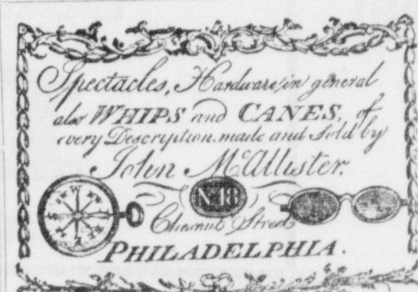 Spectacles, Hardware in general
also WHIPS and CANES, of
every Description made and Sold by
John McAllister.
No 48
Chesnut Street
PHILADELPHIA.